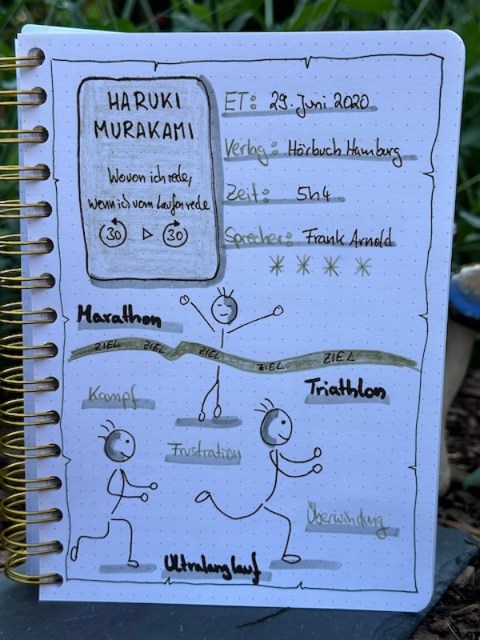 HARUKI
MURAKAMI
Wovon ich rede,
wenn ich vom Laufen rede
30 30
ET: 29. Juni 2020
Verlag: Hörbuch Hamburg
Zeit: 5h4
Sprecher: Frank Arnold
Marathon
ZIEL ZIEL ZIEL ZIEL ZIEL
Triathlon
Kampf
Frustration
Überwindung
Ultralanglauf